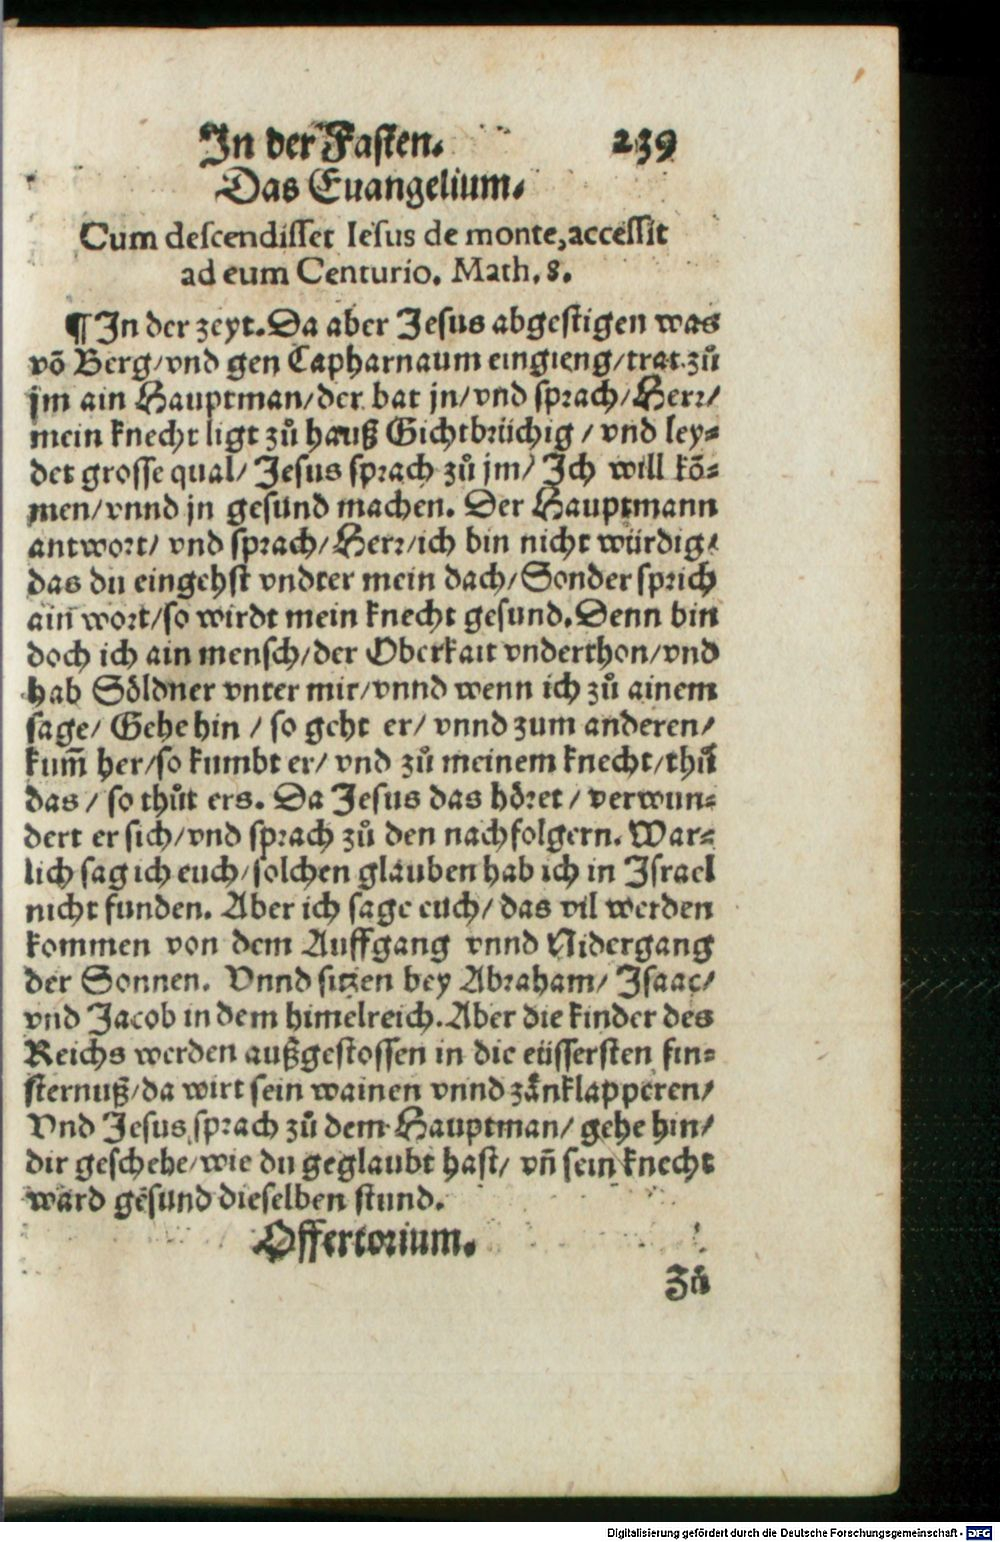 In der Fasten. 239
Das Euangelium.
Cum descendisset Iesus de monte, accessit
ad eum Centurio. Math. 8.
¶ In der zeyt. Da aber Jesus abgestigen was
võ Berg/ vnd gen Capharnaum eingieng/ trat zů
jm ain Hauptman/ der bat jn/ vnd sprach/ Herr/
mein knecht ligt zů hauß Gichtbrüchig / vnd ley-
det grosse qual/ Jesus sprach zů jm/ Ich will kõ-
men/ vnnd jn gesund machen. Der Hauptmann
antwort/ vnd sprach/ Herr/ ich bin nicht würdig/
das du eingehst vndter mein dach/ Sonder sprich
ain wort/ so wirdt mein knecht gesund. Denn bin
doch ich ain mensch/ der Oberkait vnderthon/ vnd
hab Söldner vnter mir/ vnnd wenn ich zů ainem
sage/ Gehe hin / so geht er/ vnnd zum anderen/
kum̃ her/ so kumbt er/ vnd zů meinem knecht/ thů
das / so thůt ers. Da Jesus das höret / verwun-
dert er sich/ vnd sprach zů den nachfolgern. War-
lich sag ich euch/ solchen glauben hab ich in Israel
nicht funden. Aber ich sage euch/ das vil werden
kommen von dem Auffgang vnnd Nidergang
der Sonnen. Vnnd sitzen bey Abraham/ Isaac/
vnd Jacob in dem himelreich. Aber die kinder des
Reichs werden außgestossen in die eüssersten fin-
sternuß/ da wirt sein wainen vnnd zänklapperen/
Vnd Jesus sprach zů dem Hauptman/ gehe hin/
dir geschehe/ wie du geglaubt hast/ vñ sein knecht
ward gesund dieselben stund.
Offertorium.
Zů
Digitalisierung gefördert durch die Deutsche Forschungsgemeinschaft - DFG